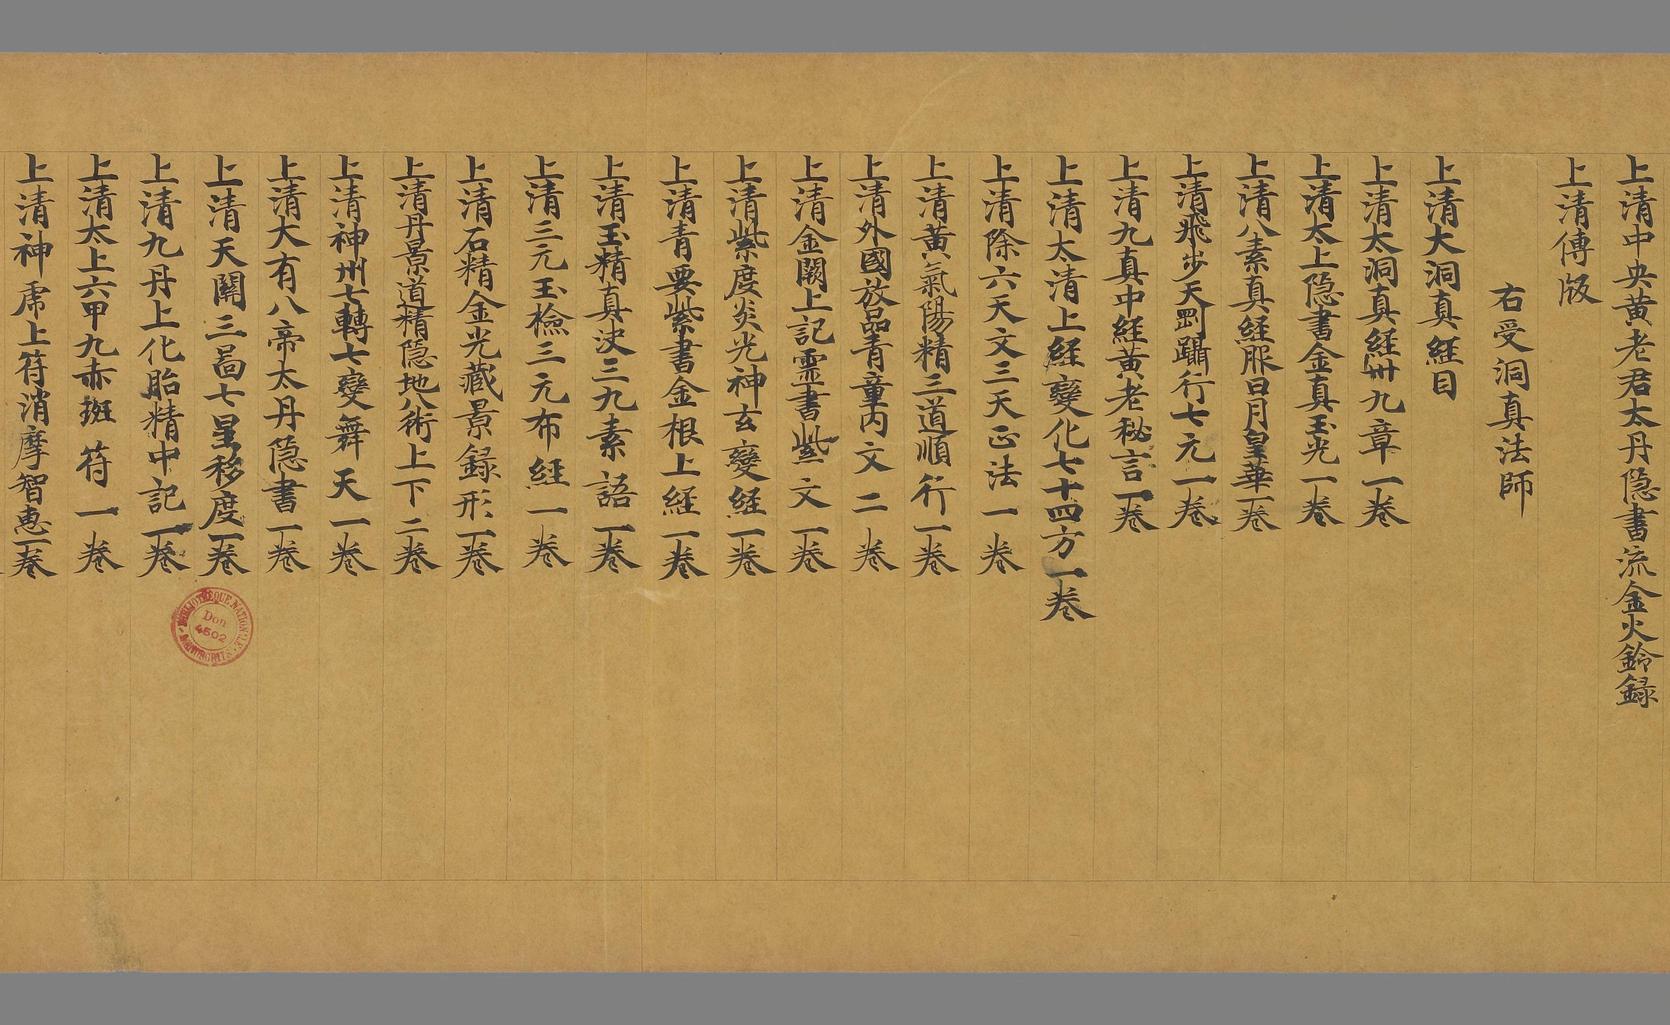 上清中央黄老君太丹隐書流金火鈴録
上清傳版
右受洞真法師
上清大洞真經目
上清太洞真經卅九章一卷
上清太上隐書金真玉光一卷
上清八素真經服日月皇華一卷
上清飛步天罡躡行七元一卷
上清九真中經黄老秘言一卷
上清太清上經變化七十四方一卷
上清除六天文三天正法一卷
上清黄氣陽精三道順行一卷
上清外國放品青童内文二卷
上清金闕上記靈書紫文一卷
上清紫度炎光神玄變經一卷
上清青要紫書金根上經一卷
上清玉精真诀三九素語一卷
上清三元玉檢三元布經一卷
上清石精金光藏景録形一卷
上清丹景道精隐地八術上下二卷
上清神州七轉七變舞天一卷
上清大有八帝太丹隐書一卷
上清天關三啚七星移度一卷
上清九丹上化胎精中記一卷
上清太上六甲九赤班符一卷
上清神虎上符消摩智惠一卷
BIBLIOTHEQUE NATIONALE
Don
4502
MANUSCRITS